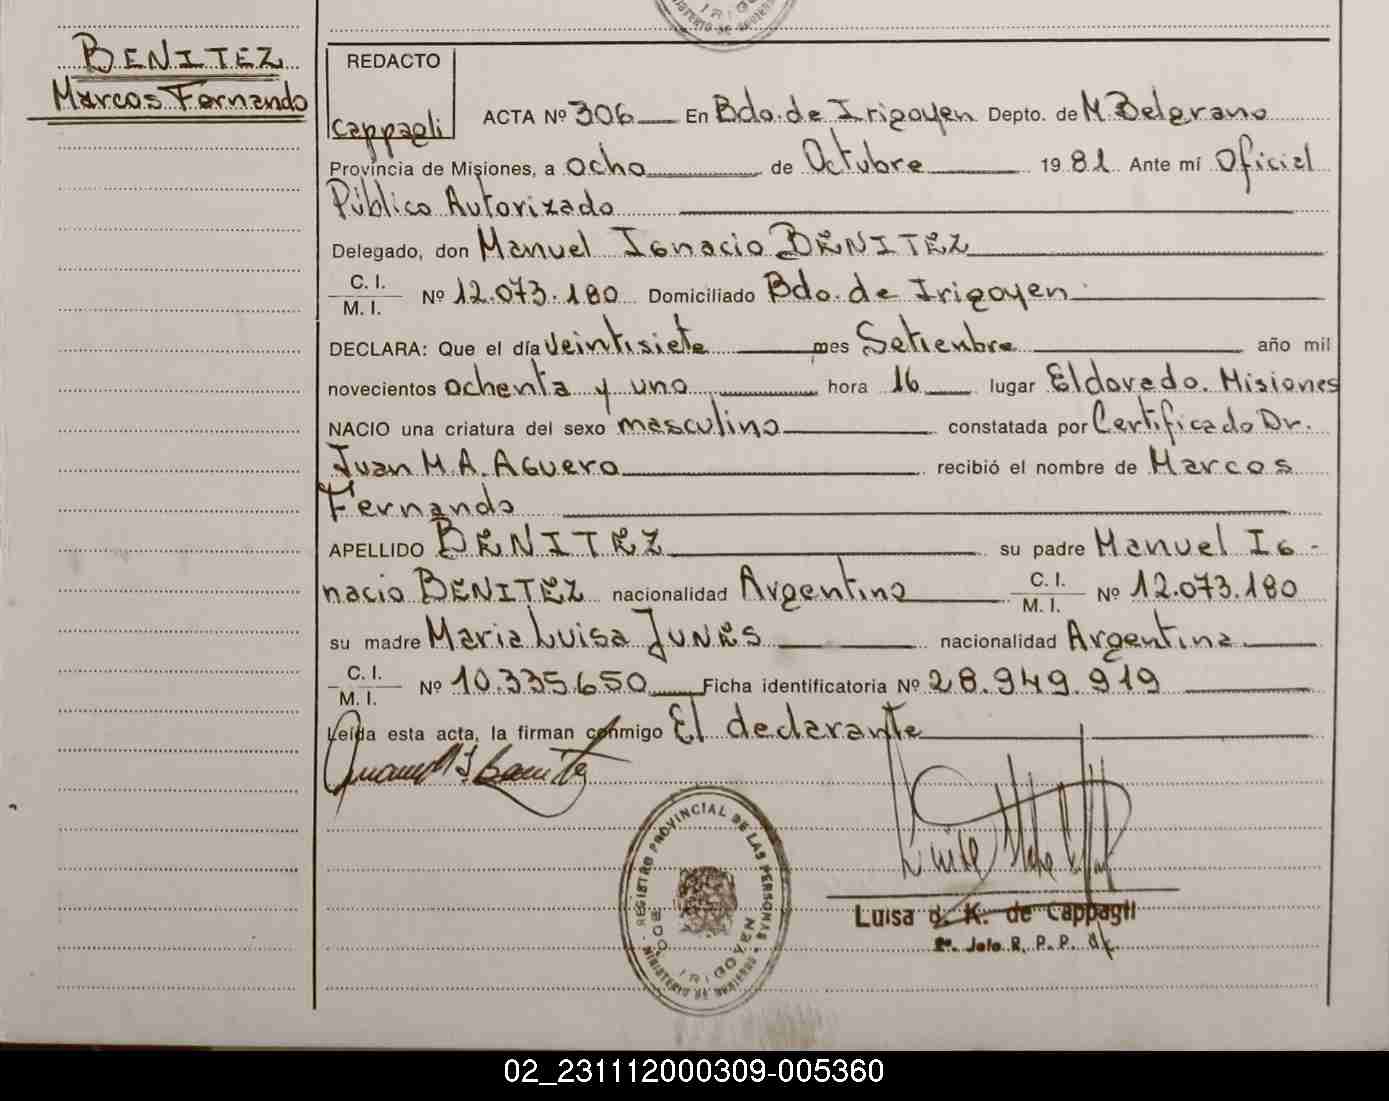 BENITEZ
Marcos Fernando
REDACTO
Cappagli
ACTA Nº 306 En Bdo. de Irigoyen Depto. de M. Belgrano
Provincia de Misiones, a ocho de Octubre 1981 Ante mí Oficial
Público Autorizado
Delegado, don Manuel Ignacio BENITEZ
C. I.
M. I. Nº 12.073.180 Domiciliado Bdo. de Irigoyen
DECLARA: Que el día veintisiete mes Setienbre año mil
novecientos ochenta y uno hora 16 lugar Eldorado. Misiones
NACIO una criatura del sexo masculino constatada por Certificado Dr.
Juan M. A. Aguero recibió el nombre de Marcos
Fernando
APELLIDO BENITEZ su padre Manuel Ig-
nacio BENITEZ nacionalidad Argentino C. I. M. I. Nº 12.073.180
su madre Maria Luisa JUNES nacionalidad Argentina
C. I.
M. I. Nº 10.335.650 Ficha identificatoria Nº 28.949.919
Leída esta acta, la firman conmigo El declarante
REGISTRO PROVINCIAL DE LAS PERSONAS
BDO. IRIGOYEN
MINISTERIO DE GOBIERNO
Luisa d. K. de Cappagli
R. P. P.
02_231112000309-005360